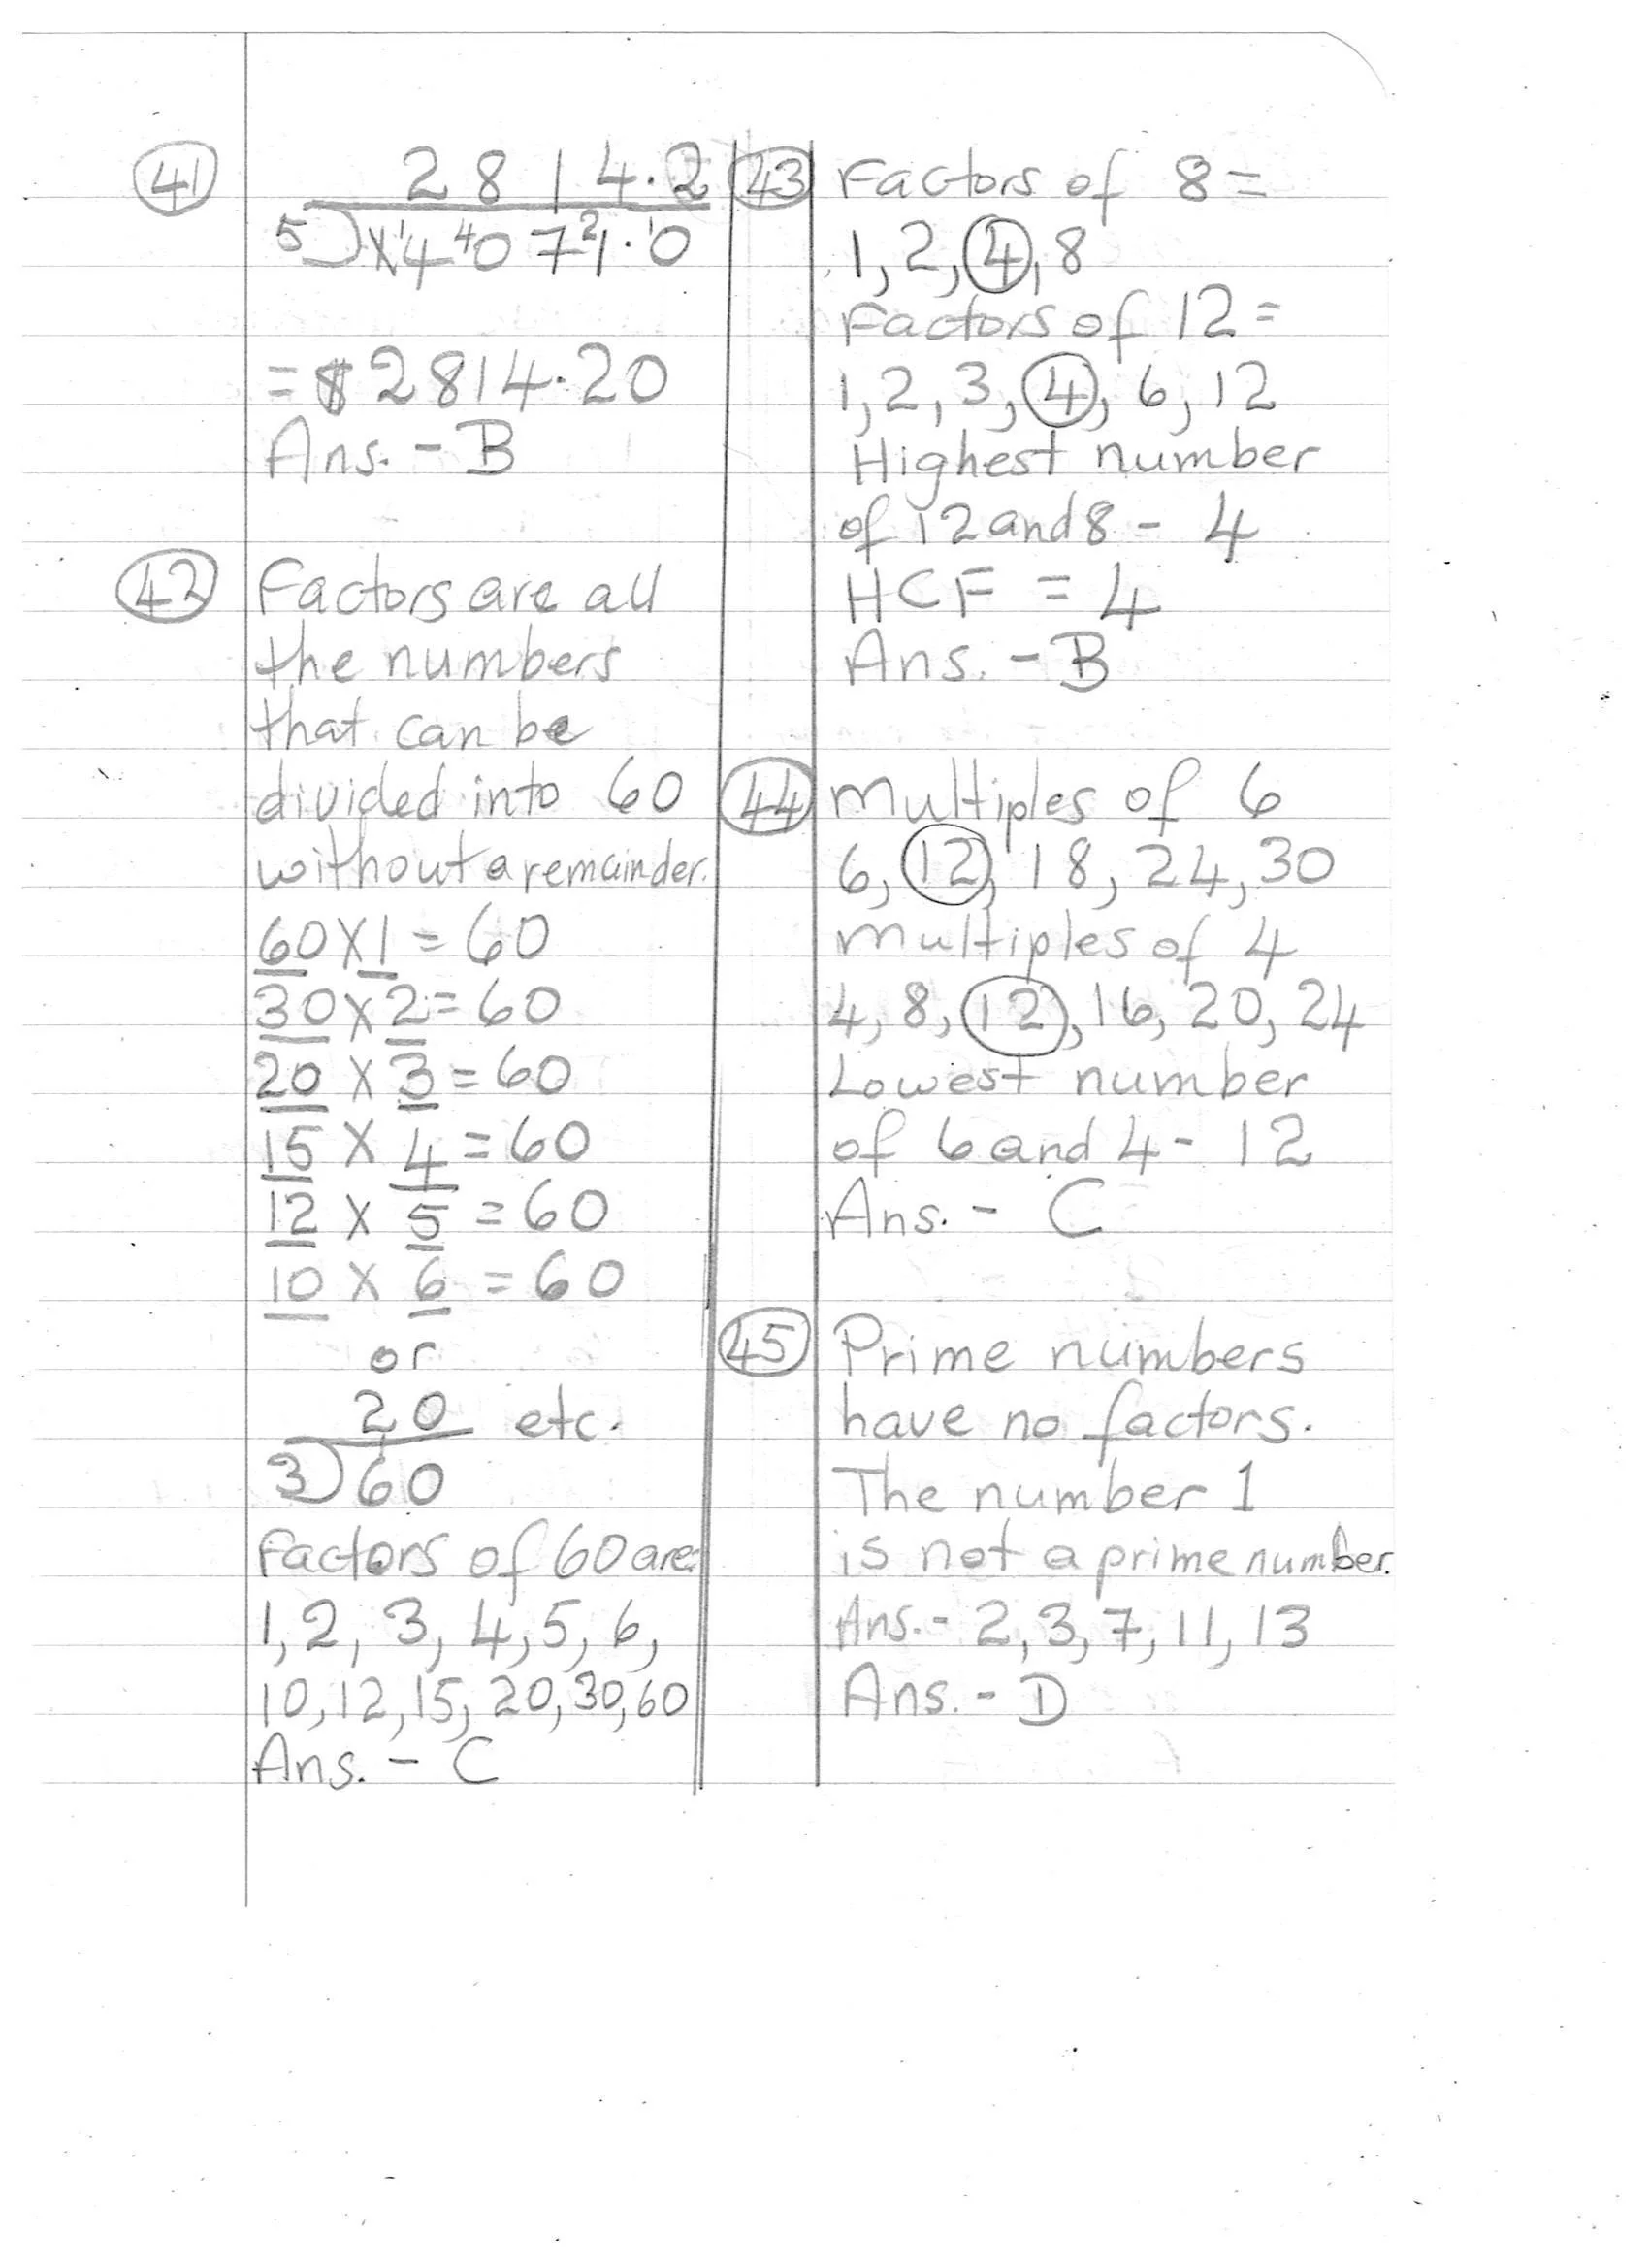 41
2 8 1 4.2
5)14 40 7 21.10
= $2814.20
Ans. - B
42
Factors are all
the numbers
that can be
divided into 60
without a remainder.
60 X 1 = 60
30 x 2 = 60
20 x 3 = 60
15 x 4 = 60
12 x 5 = 60
10 x 6 = 60
or
20 etc.
3)60
Factors of 60 are:
1, 2, 3, 4, 5, 6,
10, 12, 15, 20, 30, 60
Ans. - C
43
Factors of 8 =
1, 2, 4, 8
Factors of 12 =
1, 2, 3, 4, 6, 12
Highest number
of 12 and 8 - 4
HCF = 4
Ans. - B
44
Multiples of 6
6, 12, 18, 24, 30
Multiples of 4
4, 8, 12, 16, 20, 24
Lowest number
of 6 and 4 - 12
Ans. - C
45
Prime numbers
have no factors.
The number 1
is not a prime number.
Ans. - 2, 3, 7, 11, 13
Ans. - D